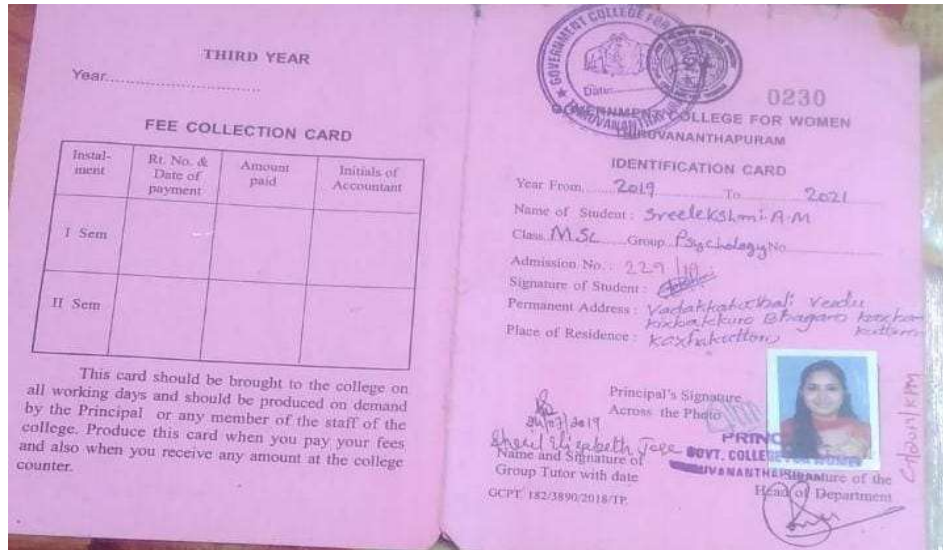 THIRD YEAR
Year
FEE COLLECTION CARD
Instal-
ment
Rt. No. &
Date of
payment
Amount
paid
Initials of
Accountant
I Sem
II Sem
This card should be brought to the college on
all working days and should be produced on demand
by the Principal or any member of the staff of the
college. Produce this card when you pay your fees
and also when you receive any amount at the college
counter.
GOVERNMENT COLLEGE FOR
THIRUVANANTHAPURAM
Date:
0230
GOVERNMENT COLLEGE FOR WOMEN
THIRUVANANTHAPURAM
IDENTIFICATION CARD
Year From 2019 To 2021
Name of Student : Sreelekshmi·A·M
Class MSc Group Psychology No
Admission No. : 229/19
Signature of Student :
Permanent Address : Veedu
Place of Residence :
Principal's Signature
Across the Photo
24/07/2019
Sheril Elizabeth Jose
Name and Signature of
Group Tutor with date
GOVT. COLLEGE FOR WOMEN
Signature of the
Head of Department
GCPT. 182/3890/2018/TP.